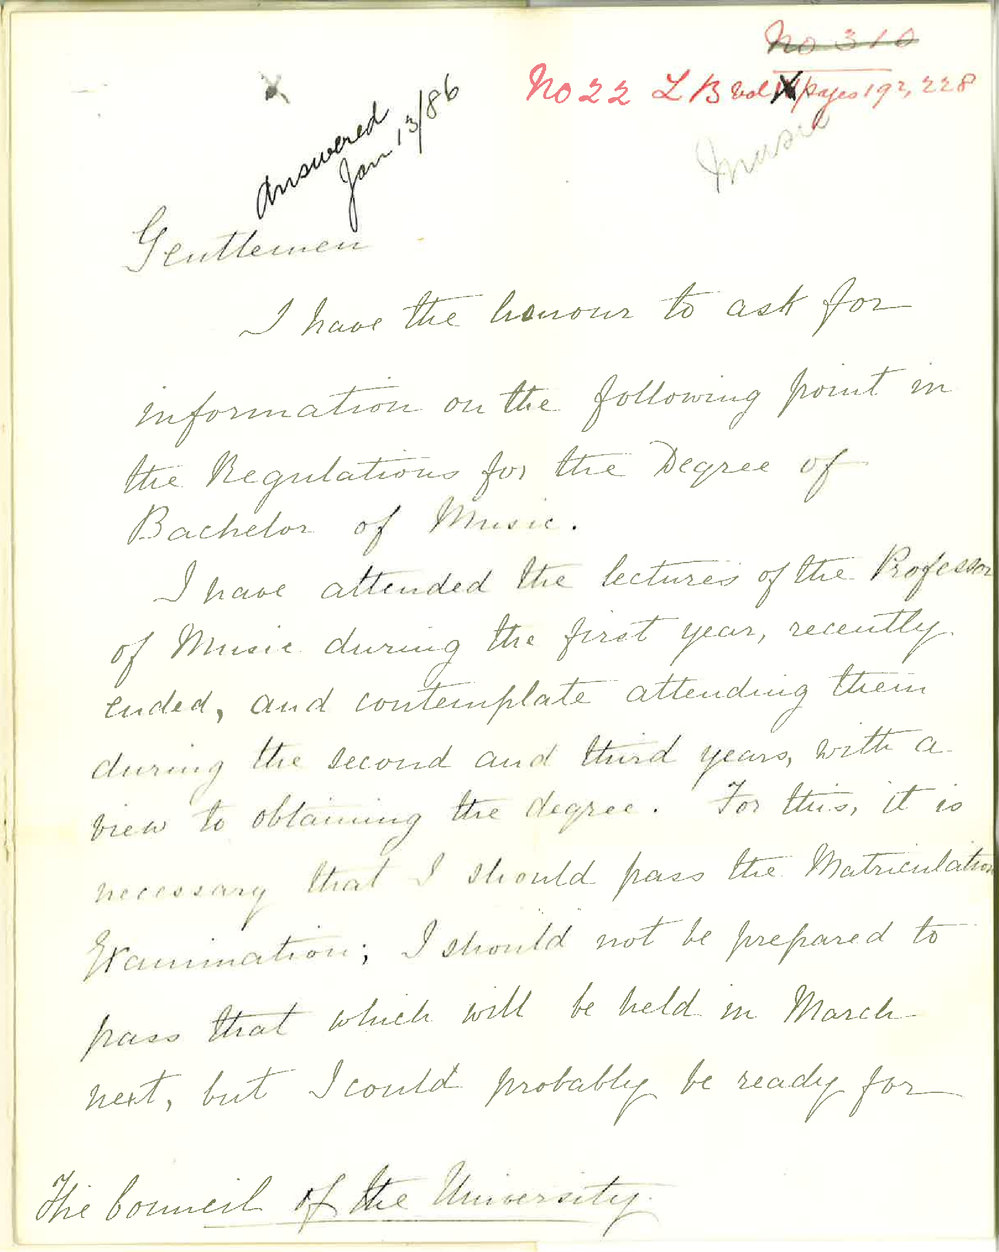 No 310
No 22 L B Vol pages 192, 228
Music
Answered
Jan 13/86
Gentlemen
I have the honour to ask for
information on the following point in
the Regulations for the Degree of
Bachelor of Music.
I have attended the lectures of the Professor
of Music during the first year, recently
ended, and contemplate attending them
during the second and third years, with a
view to obtaining the degree. For this, it is
necessary that I should pass the Matriculation
Examination; I should not be prepared to
pass that which will be held in March
next, but I could probably be ready for
The Council of the University.